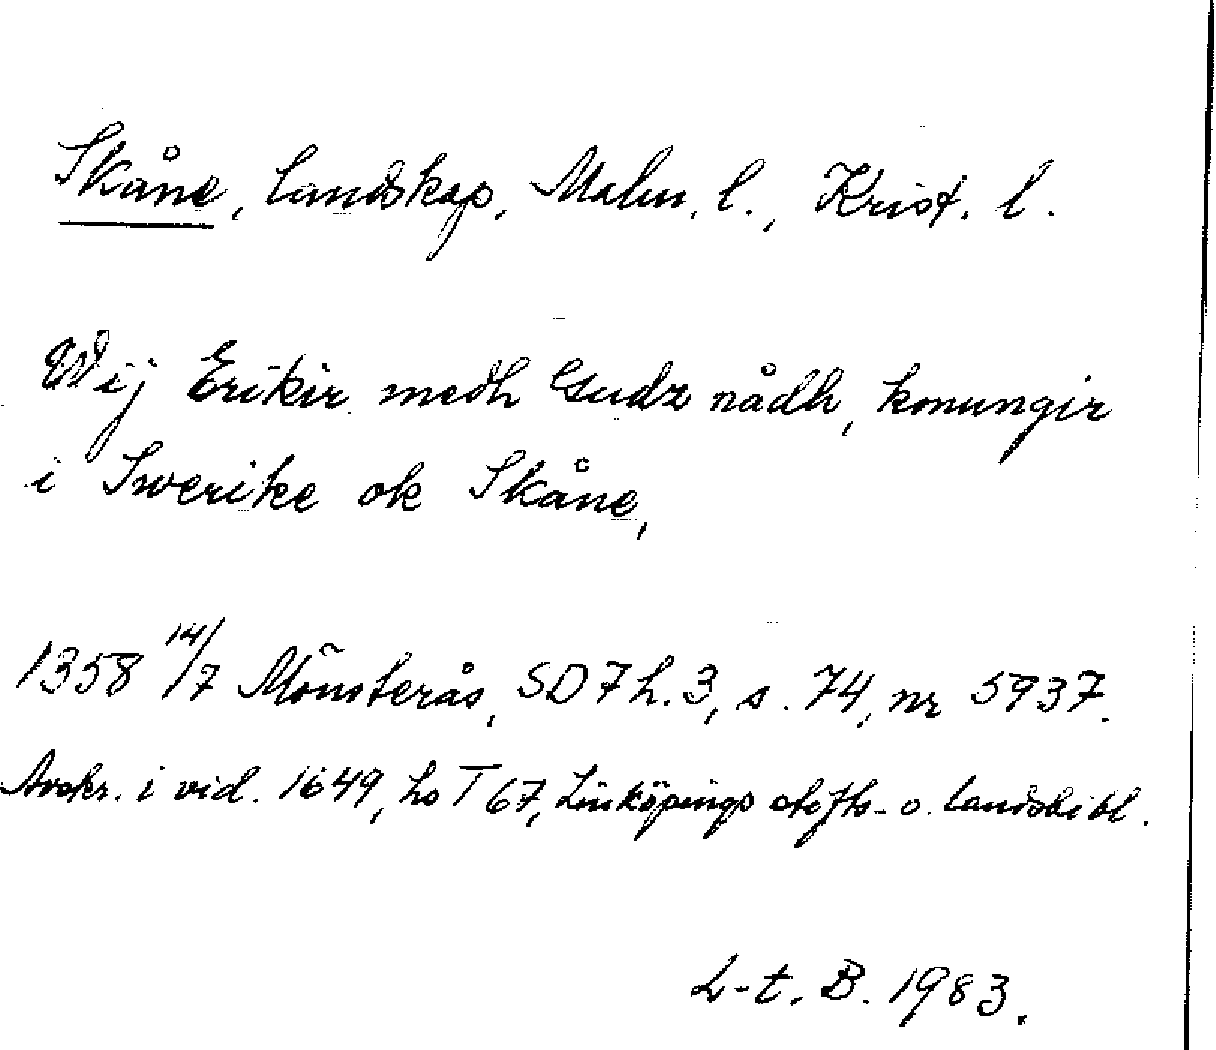 Skåne, landskap, Malm. l., Krist. l.
Wij Erikir medh Gudz nådh, konungir
i Swerike ok Skåne,
1358 14/7 Mönsterås, SD 7 h. 3, s. 74, nr 5937.
Avskr. i vid. 1649, hs T 67, Linköpings stifts- o. landsbibl.
L-t. B. 1983.